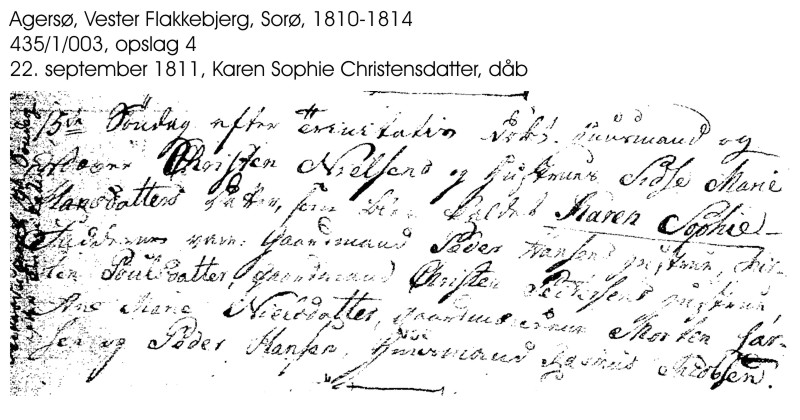 Agersø, Vester Flakkebjerg, Sorø, 1810-1814
435/1/003, opslag 4
22. september 1811, Karen Sophie Christensdatter, dåb
15de Söndag efter Trinitatis Döbt. Huusmand og
Christen Nielsens og Hustrues Sidse Marie
Hansdatters datter, som blev kaldet Karen Sophie
Fadderne vare: Gaardmand Peder Hansens hustrue, Kir-
sten Poulsdatter, gaardmand Christen Pedersens hustrue
Ane Marie Nielsdatter, gaardmændene Morten Lar-
sen og Peder Hansen, Huusmand Rasmus Jacobsen.